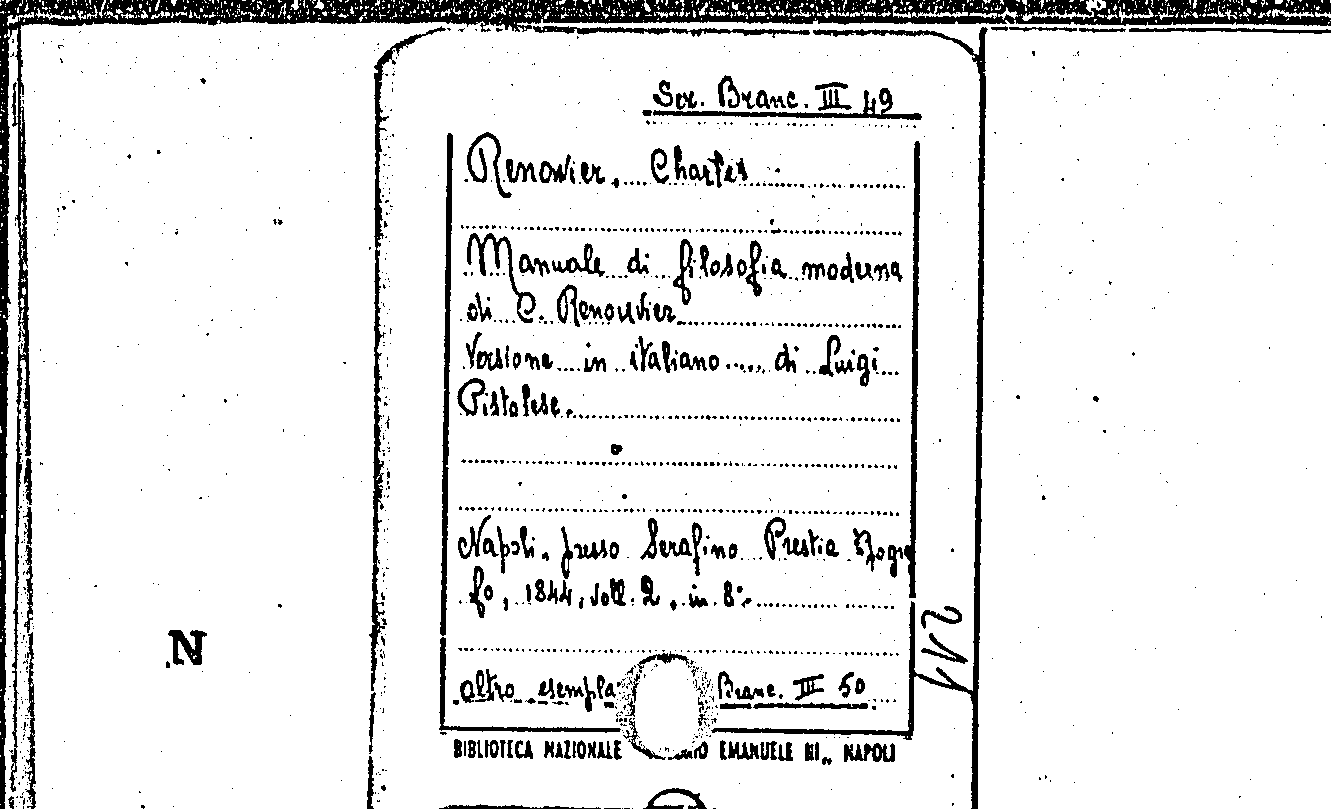 Scr. Branc. III 49
Renouvier, Charles
Manuale di filosofia moderna
di C. Renouvier
Versione in italiano .... di Luigi
Pistolese.
Napoli, presso Serafino Prestia
fo, 1844, voll. 2, in 8°.
altro esempla Branc. III 50
BIBLIOTECA NAZIONALE EMANUELE III„ NAPOLI
211
N